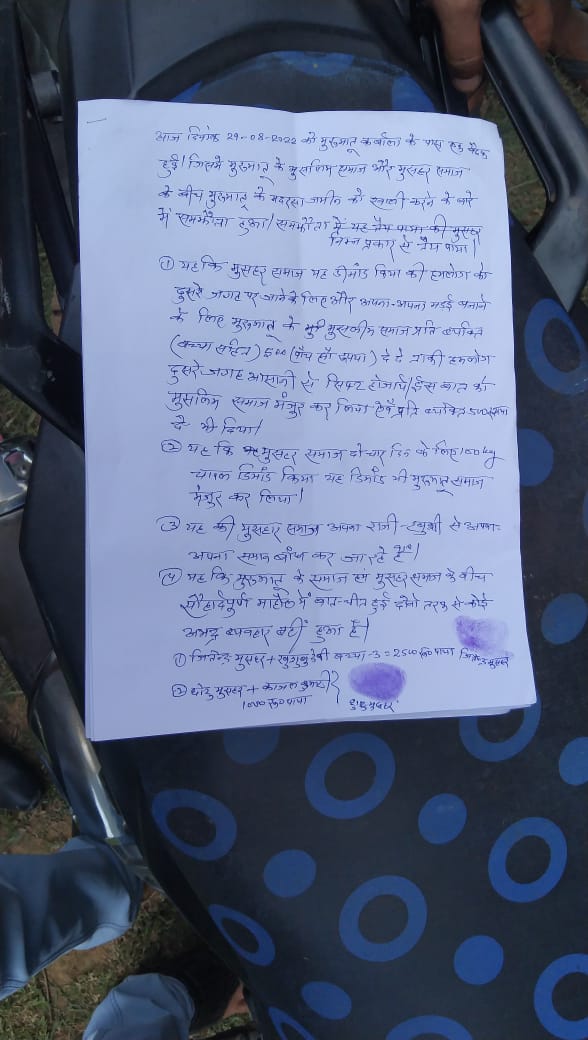 आज दिनांक 29-08-2022 को मुरुमातू कर्बाला के पास एक बैठक
हुई। जिसमें मुरुमातू के मुसलिम समाज और मुसहर समाज
के बीच मुरुमातू के मदरसा जमीन को खाली करने के बारे
में समझौता हुआ। समझौता में यह तैय पाया की मुसहर
निम्न प्रकार से तैय पाया।
① यह कि मुसहर समाज यह डीमांड किया की हमलोग को
दुसरे जगह पर जाने के लिए और अपना-अपना मडई बनाने
के लिए मुरुमातू के मुसलीम समाज प्रति व्यक्ति
(बच्चा सहित) 500 (पाँच सौ रूपया) दे दे ताकी हमलोग
दुसरे जगह आसानी से सिफ्ट होजाये। इस बात को
मुसलिम समाज मंजुर कर लिया प्रति व्यक्ति 500 रूपया
दे भी दिया।
② यह कि मुसहर समाज दो चार दिन के लिए 100 kg
चावल डिमाँड किया यह डिमाँड भी मुरुमातू समाज
मंजुर कर लिया।
③ यह की मुसहर समाज अपना राजी-खुशी से अपना-
अपना समान बाँध कर जा रहे हैं।
④ यह कि मुरुमातू के समाज एवं मुसहर समाज के बीच
सौहार्दपूर्ण माहौल में बात-चीत हुई दोनों तरफ से कोई
अभद्र व्यवहार नहीं हुआ है।
① जितेन्द्र मुसहर + देवी बच्चा-3 = 2500 रू० पाया
② छोटु मुसहर + काजल कुमारी
1000 रू० पाया